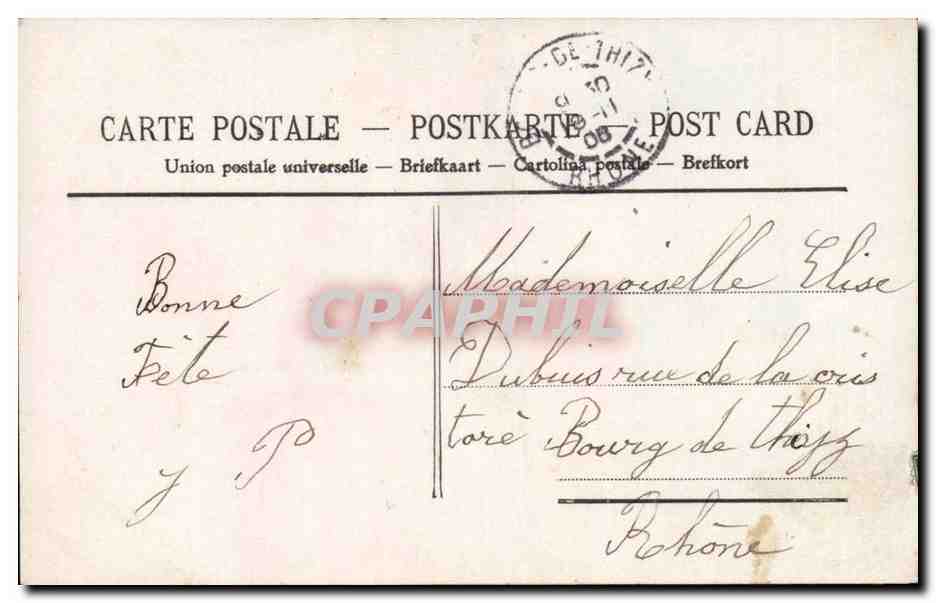 CARTE POSTALE — POSTKARTE — POST CARD
Union postale universelle — Briefkaart — Cartolina postale — Brefkort
DE-THIZY
9 30
-11
08
RHONE
Bonne
Fête
y P
Mademoiselle Elise
Dubuis rue de la cris
toré Bourg de Thizy
Rhône
CPAPHIL